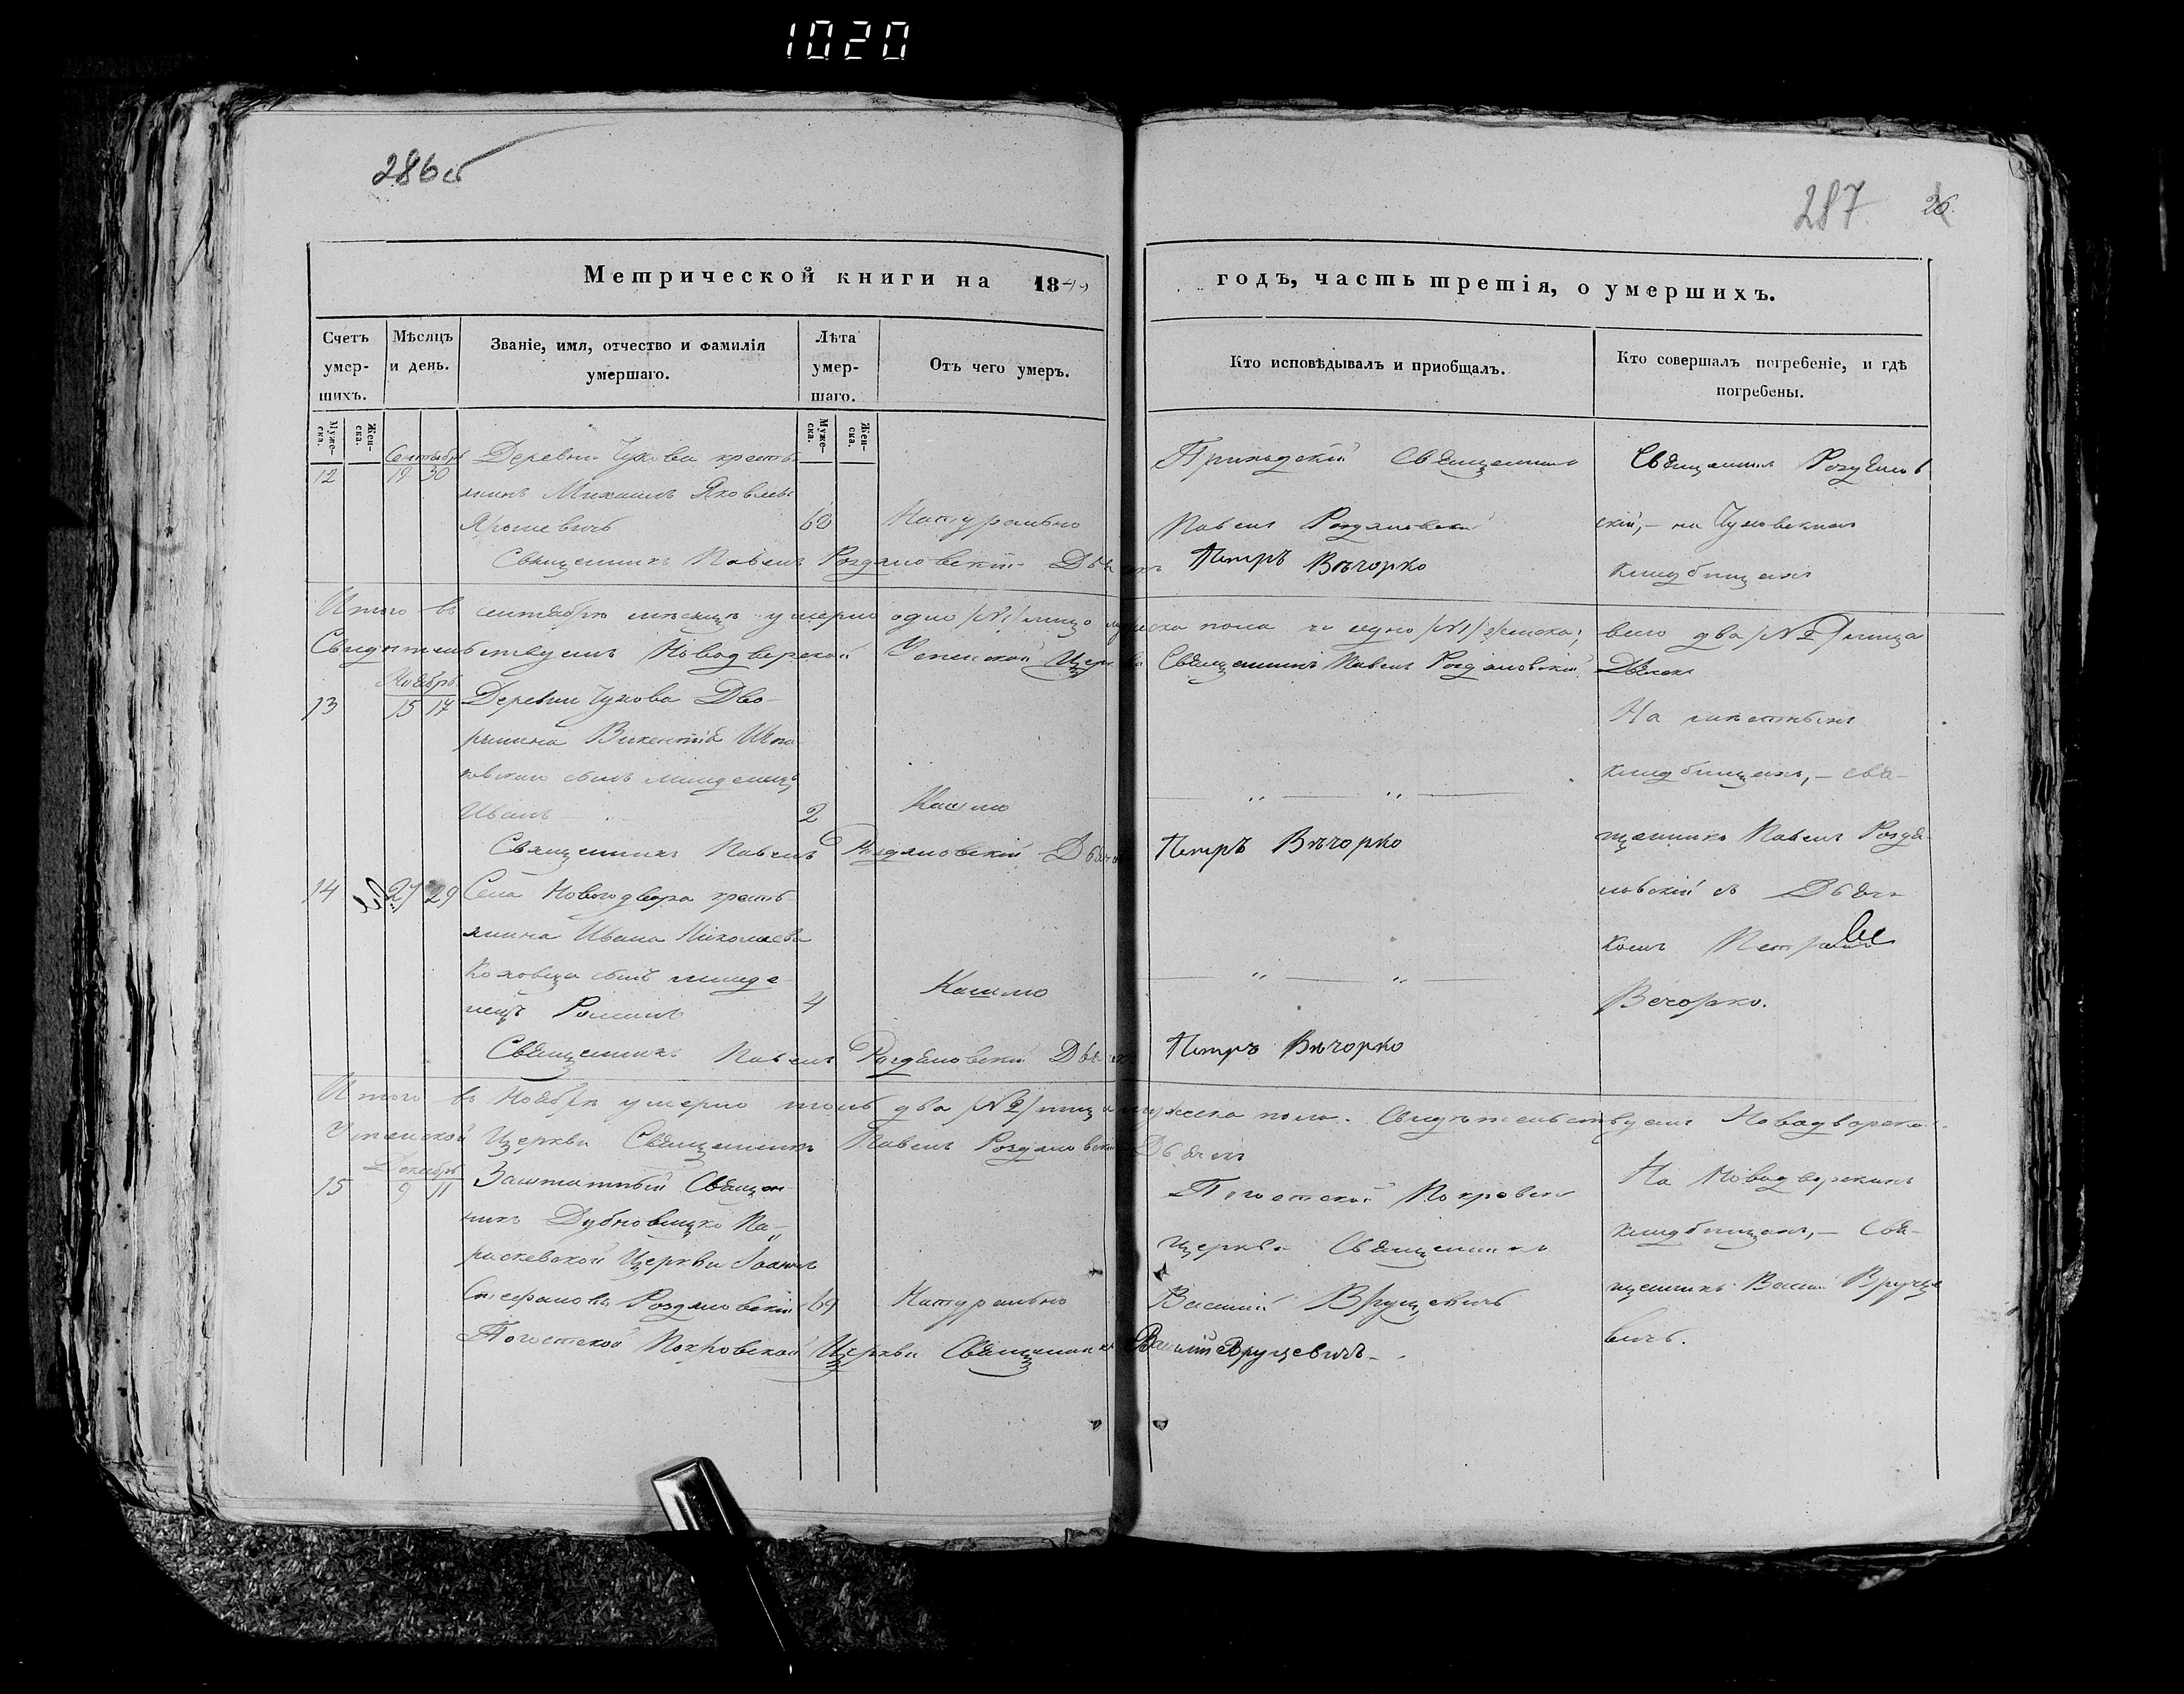 1020
286 об
287 26.
Метрической книги на 1849 годъ, часть третія, о умершихъ.
Счетъ умер-шихъ.
Мѣсяцъ и день.
Званіе, имя, отчество и фамилія умершаго.
Лѣта умер-шаго.
Отъ чего умеръ.
Кто исповѣдывалъ и приобщалъ.
Кто совершалъ погребеніе, и гдѣ погребены.
Муже-ска.
Жен-ска.
Муже-ска.
Жен-ска.
Сентябрь
12 19 30
Деревни Чухова кресть-
янинъ Михаилъ Яковлевъ
Ярошевичъ 60 Натурально
Приходскій Священникъ
Павелъ Роздяловскій
Священникъ Роздялов
скій, – на Чуховскомъ
кладбищахъ
Священникъ Павелъ Роздяловскій Дьячекъ Петръ Вѣчорко
Итого въ сентябрѣ мѣсяцѣ умерло одно /№1/ лицо мужеска пола и одно /№1/ женска; всего два /№2/ лица
Свидѣтельствуемъ Новодворской Успенской Церкви Священникъ Павелъ Роздяловскій Дьячекъ
Ноябрь
13 15 17
Деревни Чухова Дво-
рянина Викентія
сынъ младенецъ
Иванъ 2 Кашлю
— " — " —
На
кладбищахъ, – свя-
щенникъ Павелъ Роздя-
ловскій съ Дьяч-
комъ Петромъ
Вечорко.
Священникъ Павелъ Роздяловскій Дьячекъ Петръ Вѣчорко
14 27 29
Села Новогодвора кресть-
янина Ивана Николаева
сынъ младе-
нецъ Романъ 4 Кашлю
— " — " —
Священникъ Павелъ Роздяловскій Дьячекъ Петръ Вѣчорко
Итого въ Ноябрѣ умерло два /№2/ лица мужеска пола. Свидѣтельствуемъ Новодворской
Успенской Церкви Священникъ Павелъ Роздяловскій Дьячекъ
Декабрь
15 9 11
Заштатный Священ-
никъ Па-
раскевской Церкви Іоаннъ
Стефановъ Роздяловскій 69 Натурально
Погостской Покровской
церкви Священникъ
Василій Вруцевичъ
На Новодворскихъ
кладбищахъ, – Свя-
щенникъ Василій Вруце
вичъ.
Погостской Покровской Церкви Священникъ Василій Вруцевичъ